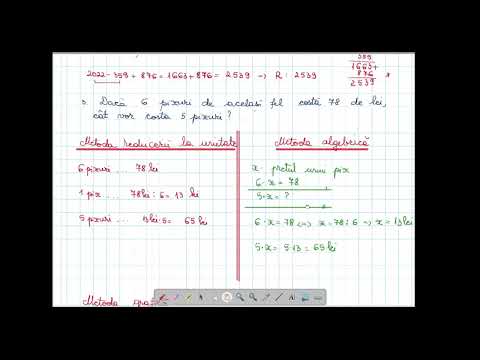 359
1663+
876
2539
2022-359+876=1663+876=2539 → R: 2539
3. Dacă 6 pixuri de același fel costă 78 de lei,
cât vor costa 5 pixuri?
Metoda reducerii la unitate
6 pixuri ... 78 lei
1 pix ... 78 lei : 6 = 13 lei
5 pixuri ... 13 lei·5= 65 lei
Metoda algebrică
x - prețul unui pix
6·x = 78
5·x = ?
6·x = 78 ⟺ x = 78 : 6 ⟹ x = 13 lei
5·x = 5·13 = 65 lei
Metoda